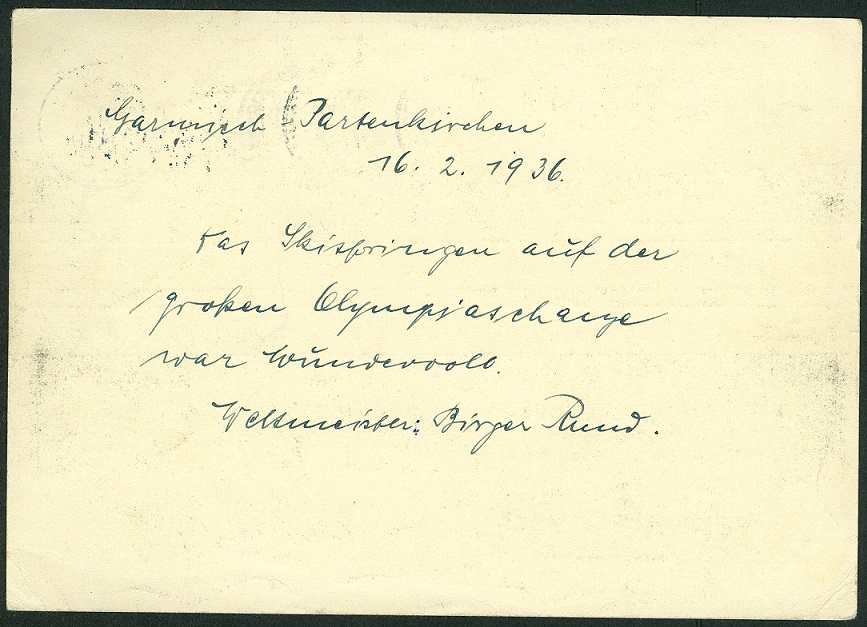 Garmisch Partenkirchen
16. 2. 1936.
Das Skispringen auf der
großen Olympiaschanze
war wundervoll.
Weltmeister: Birger Ruud.